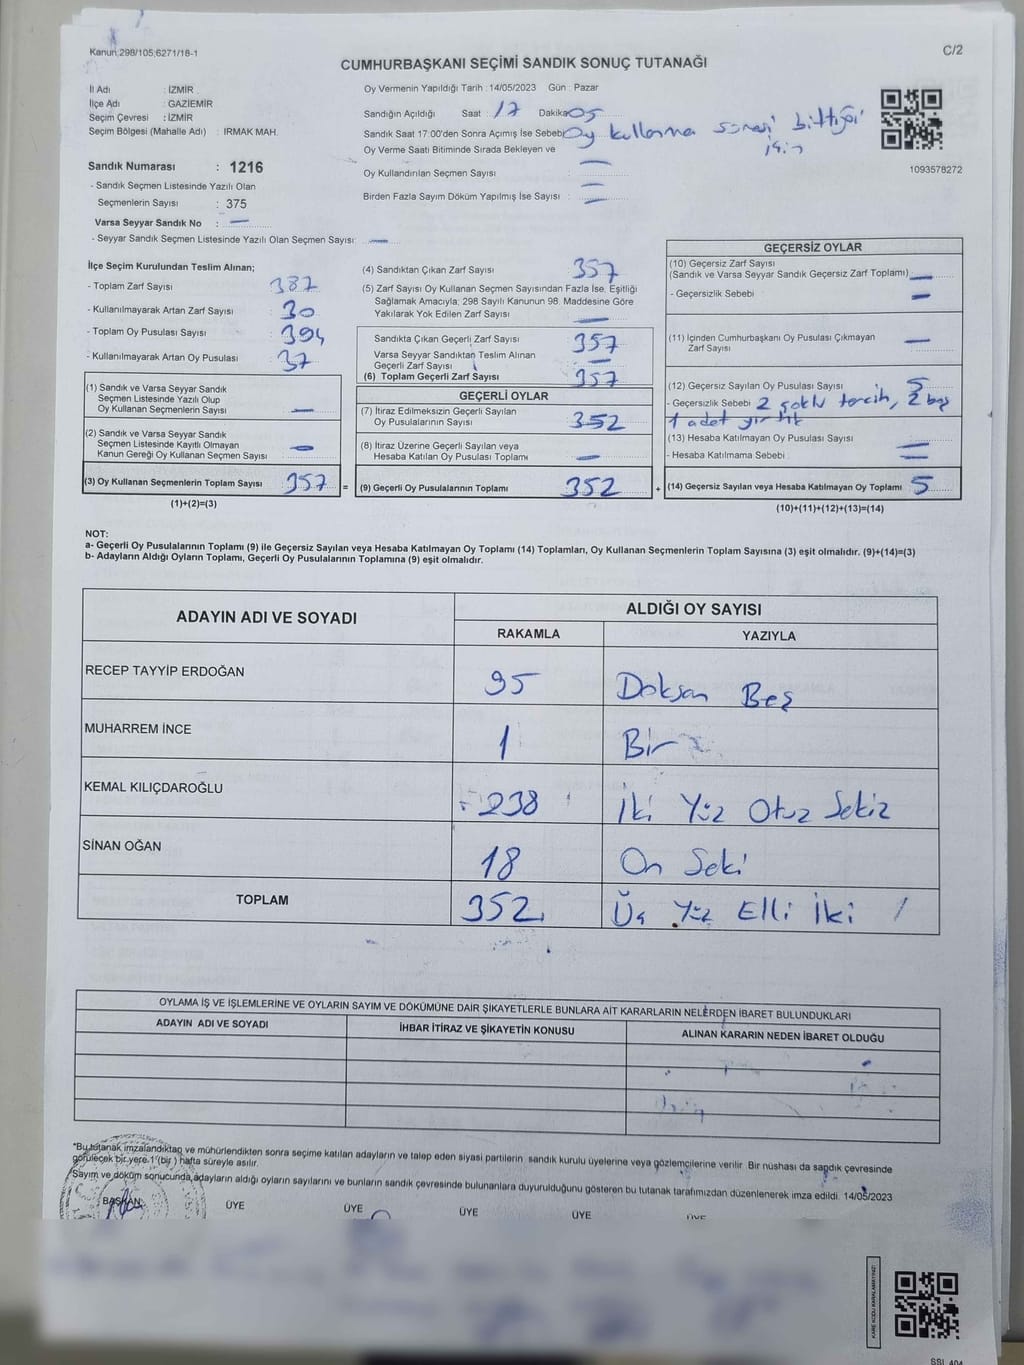 Kanun;298/105;6271/18-1
C/2
CUMHURBAŞKANI SEÇİMİ SANDIK SONUÇ TUTANAĞI
İl Adı : İZMİR
İlçe Adı : GAZİEMİR
Seçim Çevresi : İZMİR
Seçim Bölgesi (Mahalle Adı) : IRMAK MAH.
Sandık Numarası : 1216
- Sandık Seçmen Listesinde Yazılı Olan
Seçmenlerin Sayısı : 375
Varsa Seyyar Sandık No : —
- Seyyar Sandık Seçmen Listesinde Yazılı Olan Seçmen Sayısı: —
Oy Vermenin Yapıldığı Tarih : 14/05/2023 Gün : Pazar
Sandığın Açıldığı Saat : 17 Dakika 05
Sandık Saat 17:00'den Sonra Açımış İse Sebebi Oy kullanma süresi bittiği için
Oy Verme Saati Bitiminde Sırada Bekleyen ve
Oy Kullandırılan Seçmen Sayısı : —
Birden Fazla Sayım Döküm Yapılmış İse Sayısı : —
1093578272
İlçe Seçim Kurulundan Teslim Alınan;
- Toplam Zarf Sayısı 387
- Kullanılmayarak Artan Zarf Sayısı 30
- Toplam Oy Pusulası Sayısı 394
- Kullanılmayarak Artan Oy Pusulası 37
(1) Sandık ve Varsa Seyyar Sandık
Seçmen Listesinde Yazılı Olup
Oy Kullanan Seçmenlerin Sayısı —
(2) Sandık ve Varsa Seyyar Sandık
Seçmen Listesinde Kayıtlı Olmayan
Kanun Gereği Oy Kullanan Seçmen Sayısı —
(3) Oy Kullanan Seçmenlerin Toplam Sayısı 357 =
(1)+(2)=(3)
(4) Sandıktan Çıkan Zarf Sayısı 357
(5) Zarf Sayısı Oy Kullanan Seçmen Sayısından Fazla İse, Eşitliği
Sağlamak Amacıyla; 298 Sayılı Kanunun 98. Maddesine Göre
Yakılarak Yok Edilen Zarf Sayısı —
Sandıkta Çıkan Geçerli Zarf Sayısı 357
Varsa Seyyar Sandıktan Teslim Alınan
Geçerli Zarf Sayısı —
(6) Toplam Geçerli Zarf Sayısı 357
GEÇERLİ OYLAR
(7) İtiraz Edilmeksizin Geçerli Sayılan
Oy Pusulalarının Sayısı 352
(8) İtiraz Üzerine Geçerli Sayılan veya
Hesaba Katılan Oy Pusulası Toplamı —
(9) Geçerli Oy Pusulalarının Toplamı 352 +
GEÇERSİZ OYLAR
(10) Geçersiz Zarf Sayısı
(Sandık ve Varsa Seyyar Sandık Geçersiz Zarf Toplamı) —
- Geçersizlik Sebebi —
(11) İçinden Cumhurbaşkanı Oy Pusulası Çıkmayan
Zarf Sayısı —
(12) Geçersiz Sayılan Oy Pusulası Sayısı 5
- Geçersizlik Sebebi 2 çoklu tercih, 2 boş
1 adet yırtık
(13) Hesaba Katılmayan Oy Pusulası Sayısı —
- Hesaba Katılmama Sebebi —
(14) Geçersiz Sayılan veya Hesaba Katılmayan Oy Toplamı 5
(10)+(11)+(12)+(13)=(14)
NOT:
a- Geçerli Oy Pusulalarının Toplamı (9) ile Geçersiz Sayılan veya Hesaba Katılmayan Oy Toplamı (14) Toplamları, Oy Kullanan Seçmenlerin Toplam Sayısına (3) eşit olmalıdır. (9)+(14)=(3)
b- Adayların Aldığı Oyların Toplamı, Geçerli Oy Pusulalarının Toplamına (9) eşit olmalıdır.
ADAYIN ADI VE SOYADI
ALDIĞI OY SAYISI
RAKAMLA YAZIYLA
RECEP TAYYİP ERDOĞAN 95 Doksan Beş
MUHARREM İNCE 1 Bir
KEMAL KILIÇDAROĞLU 238 İki Yüz Otuz Sekiz
SİNAN OĞAN 18 On Seki
TOPLAM 352 Üç Yüz Elli İki
OYLAMA İŞ VE İŞLEMLERİNE VE OYLARIN SAYIM VE DÖKÜMÜNE DAİR ŞİKAYETLERLE BUNLARA AİT KARARLARIN NELERDEN İBARET BULUNDUKLARI
ADAYIN ADI VE SOYADI İHBAR İTİRAZ VE ŞİKAYETİN KONUSU ALINAN KARARIN NEDEN İBARET OLDUĞU
*Bu tutanak imzalandıktan ve mühürlendikten sonra seçime katılan adayların ve talep eden siyasi partilerin sandık kurulu üyelerine veya gözlemcilerine verilir. Bir nüshası da sandık çevresinde
görülecek bir yere 1 (bir) hafta süreyle asılır.
Sayım ve döküm sonucunda, adayların aldığı oyların sayılarını ve bunların sandık çevresinde bulunanlara duyurulduğunu gösteren bu tutanak tarafımızdan düzenlenerek imza edildi. 14/05/2023
BAŞKAN ÜYE ÜYE ÜYE ÜYE ÜYE
KARE KODU KARALAMAYINIZ!